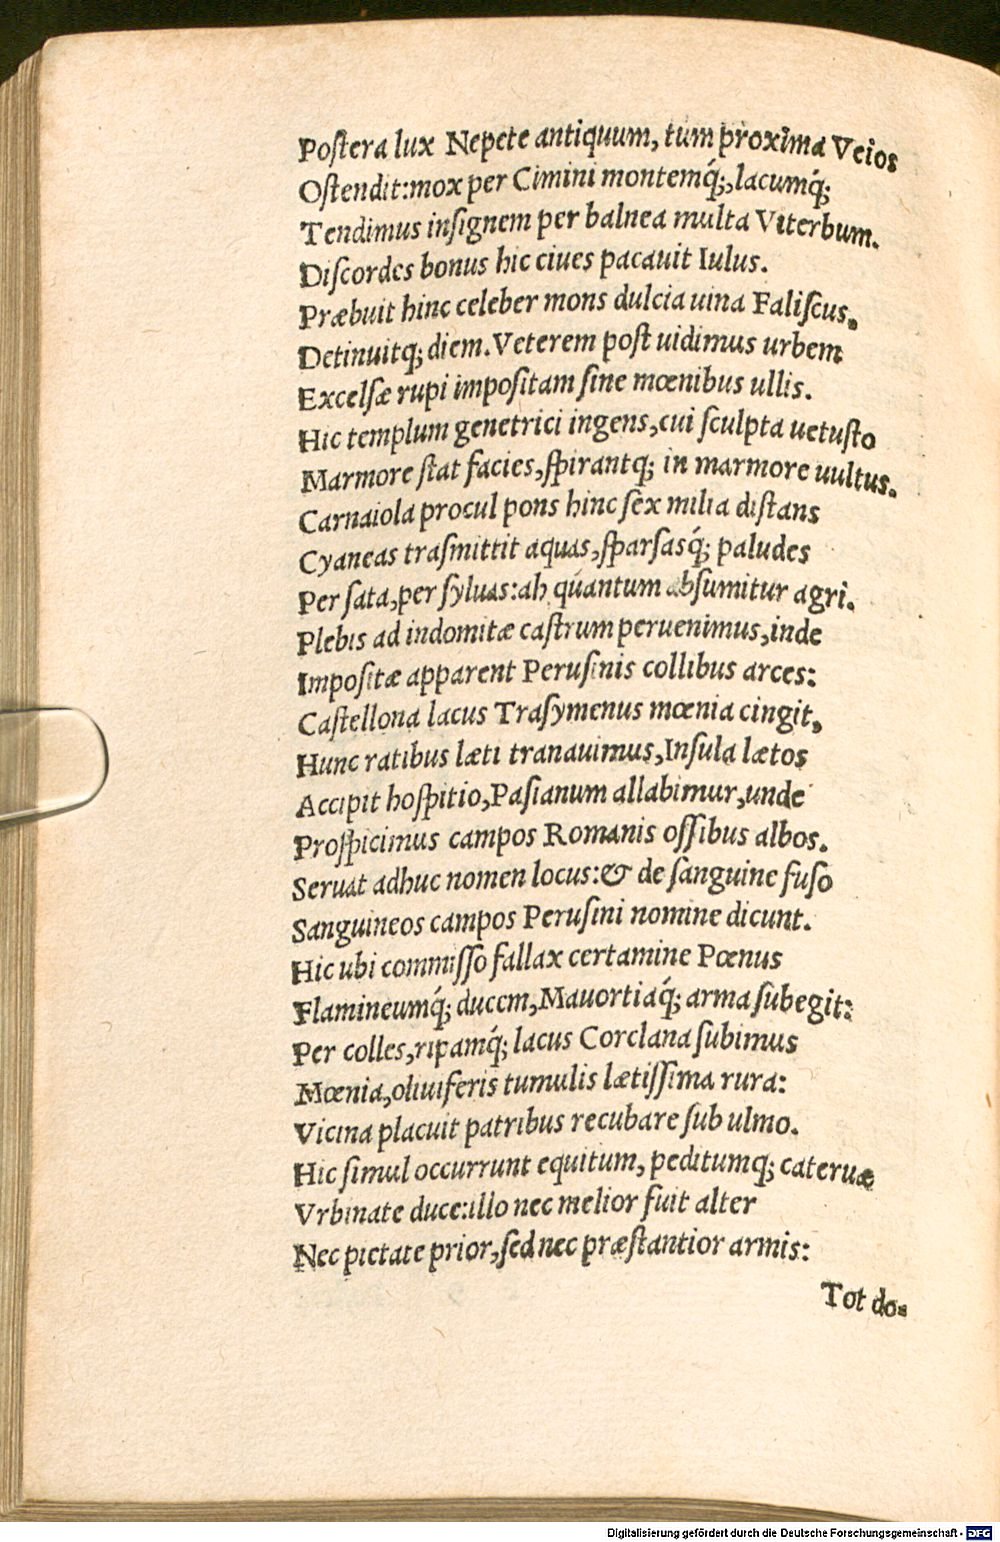 Poſtera lux Nepete antiquum, tum proxima Veios
Oſtendit:mox per Cimini montemq́;,lacumq́;
Tendimus inſignem per balnea multa Viterbum.
Diſcordes bonus hic ciues pacauit Iulus.
Præbuit hinc celeber mons dulcia uina Faliſcus,
Detinuitq; diem.Veterem poſt uidimus urbem
Excelſæ rupi impoſitam ſine mœnibus ullis.
Hic templum genetrici ingens,cui ſculpta uetuſto
Marmore ſtat facies,ſpirantq; in marmore uultus.
Carnaiola procul pons hinc ſex milia diſtans
Cyaneas traſmittit aquas,ſparſasq́; paludes
Per ſata,per ſyluas:ah quantum abſumitur agri.
Plebis ad indomitæ caſtrum peruenimus,inde
Impoſitæ apparent Peruſinis collibus arces:
Caſtellona lacus Traſymenus mœnia cingit,
Hunc ratibus læti tranauimus,Inſula lætos
Accipit hoſpitio,Paſianum allabimur,unde
Proſpicimus campos Romanis oſſibus albos.
Seruat adhuc nomen locus:& de ſanguine fuſo
Sanguineos campos Peruſini nomine dicunt.
Hic ubi commiſſo fallax certamine Pœnus
Flamineumq́; ducem,Mauortiaq́; arma ſubegit:
Per colles,ripamq́; lacus Corclana ſubimus
Mœnia,oliuiferis tumulis lætiſſima rura:
Vicina placuit patribus recubare ſub ulmo.
Hic ſimul occurrunt equitum, peditumq; cateruæ
Vrbinate duce:illo nec melior fuit alter
Nec pietate prior,ſed nec præſtantior armis:
Tot do-
Digitalisierung gefördert durch die Deutsche Forschungsgemeinschaft - DFG